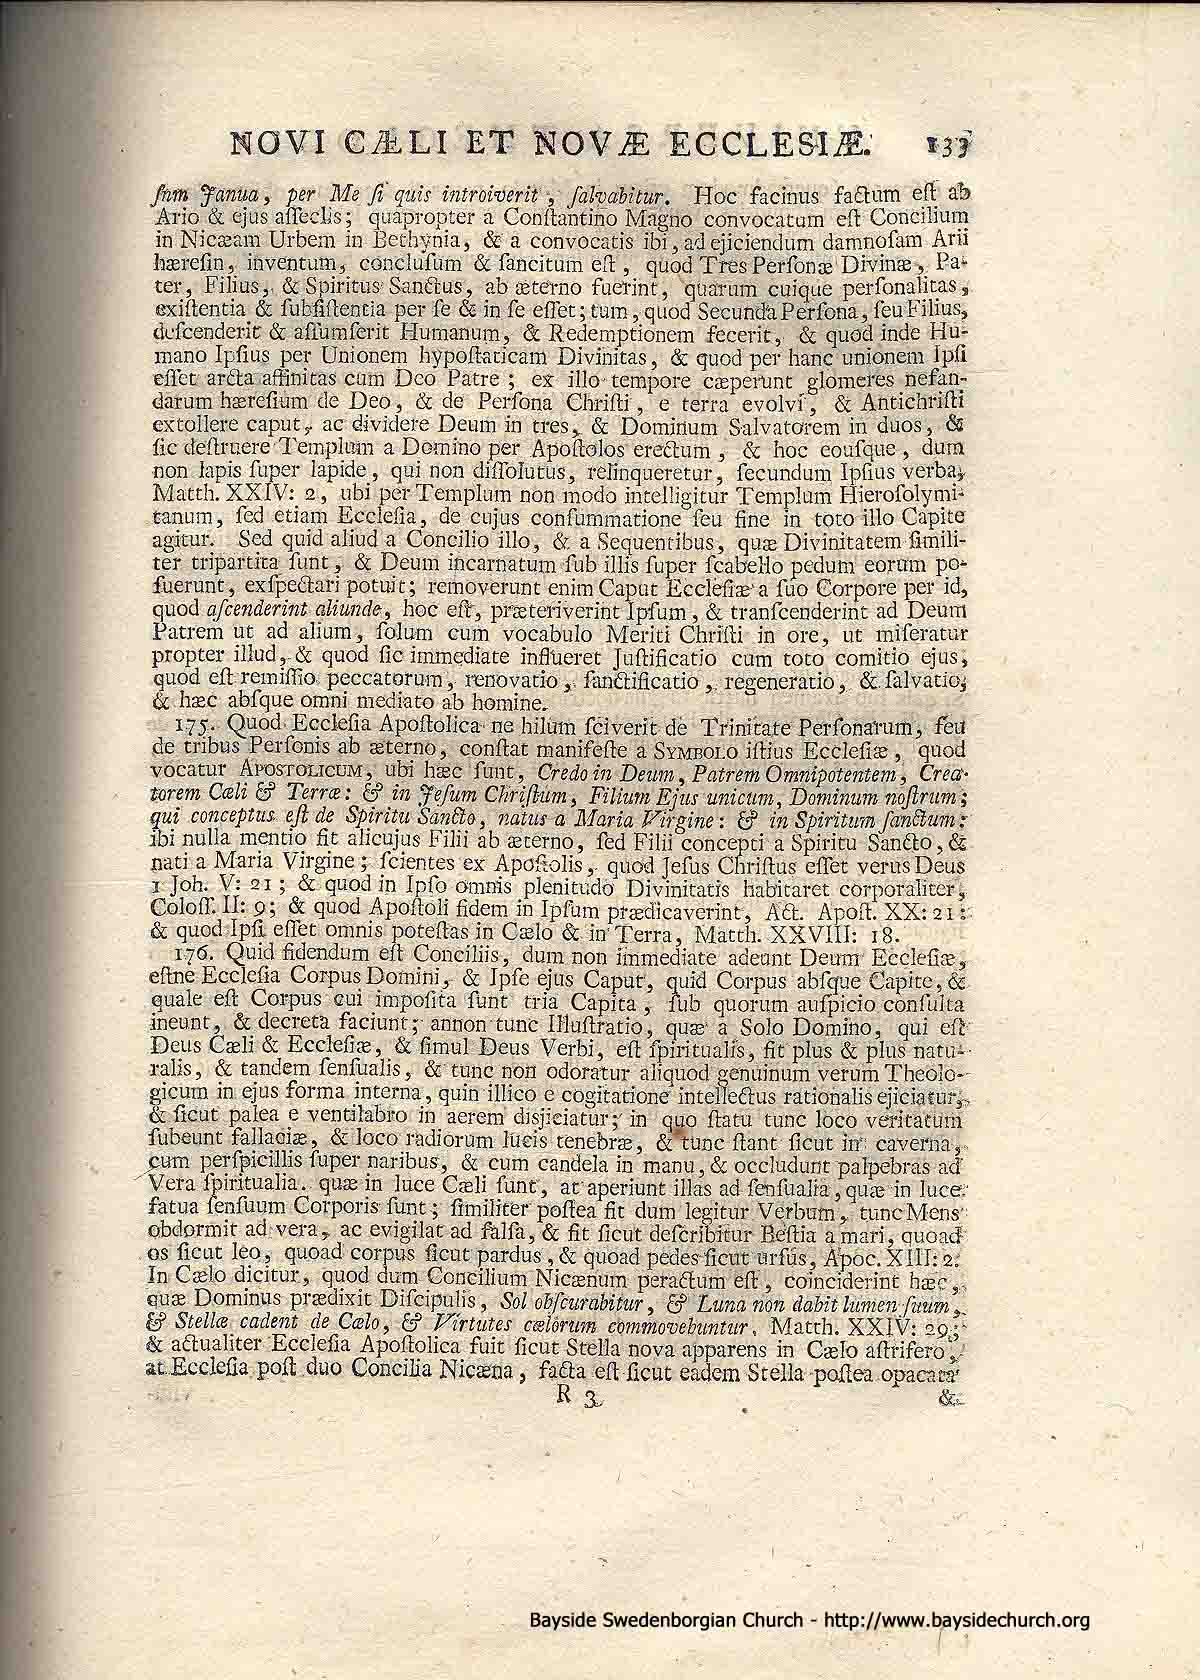 NOVI CÆLI ET NOVÆ ECCLESIÆ. 133
ſum Janua, per Me ſi quis introiverit, ſalvabitur. Hoc facinus factum eſt ab
Ario & ejus aſſeclis; quapropter a Conſtantino Magno convocatum eſt Concilium
in Nicæam Urbem in Bethynia, & a convocatis ibi, ad ejiciendum damnoſam Arii
hæreſin, inventum, concluſum & ſancitum eſt, quod Tres Perſonæ Divinæ, Pa-
ter, Filius, & Spiritus Sanctus, ab æterno fuerint, quarum cuique perſonalitas,
exiſtentia & ſubſiſtentia per ſe & in ſe eſſet; tum, quod Secunda Perſona, ſeu Filius,
deſcenderit & aſſumſerit Humanum, & Redemptionem fecerit, & quod inde Hu-
mano Ipſius per Unionem hypoſtaticam Divinitas, & quod per hanc unionem Ipſi
eſſet arcta affinitas cum Deo Patre; ex illo tempore cæperunt glomeres nefan-
darum hæreſium de Deo, & de Perſona Chriſti, e terra evolvi, & Antichriſti
extollere caput, ac dividere Deum in tres, & Dominum Salvatorem in duos, &
ſic deſtruere Templum a Domino per Apoſtolos erectum, & hoc eouſque, dum
non lapis ſuper lapide, qui non diſſolutus, relinqueretur, ſecundum Ipſius verba,
Matth. XXIV: 2, ubi per Templum non modo intelligitur Templum Hieroſolymi-
tanum, ſed etiam Eccleſia, de cujus conſummatione ſeu fine in toto illo Capite
agitur. Sed quid aliud a Concilio illo, & a Sequentibus, quæ Divinitatem ſimili-
ter tripartita ſunt, & Deum incarnatum ſub illis ſuper ſcabello pedum eorum po-
ſuerunt, exſpectari potuit; removerunt enim Caput Eccleſiæ a ſuo Corpore per id,
quod aſcenderint aliunde, hoc eſt, præteriverint Ipſum, & tranſcenderint ad Deum
Patrem ut ad alium, ſolum cum vocabulo Meriti Chriſti in ore, ut miſeratur
propter illud, & quod ſic immediate influeret Juſtificatio cum toto comitio ejus,
quod eſt remiſſio peccatorum, renovatio, ſanctificatio, regeneratio, & ſalvatio,
& hæc abſque omni mediato ab homine.
175. Quod Eccleſia Apoſtolica ne hilum ſciverit de Trinitate Perſonarum, ſeu
de tribus Perſonis ab æterno, conſtat manifeſte a SYMBOLO iſtius Eccleſiæ, quod
vocatur APOSTOLICUM, ubi hæc ſunt, Credo in Deum, Patrem Omnipotentem, Crea-
torem Cæli & Terræ: & in Jeſum Chriſtum, Filium Ejus unicum, Dominum noſtrum;
qui conceptus eſt de Spiritu Sancto, natus a Maria Virgine: & in Spiritum ſanctum:
ibi nulla mentio fit alicujus Filii ab æterno, ſed Filii concepti a Spiritu Sancto, &
nati a Maria Virgine; ſcientes ex Apoſtolis, quod Jeſus Chriſtus eſſet verus Deus
1 Joh. V: 21; & quod in Ipſo omnis plenitudo Divinitatis habitaret corporaliter,
Coloſſ. II: 9; & quod Apoſtoli fidem in Ipſum prædicaverint, Act. Apoſt. XX: 21:
& quod Ipſi eſſet omnis poteſtas in Cælo & in Terra, Matth. XXVIII: 18.
176. Quid fidendum eſt Conciliis, dum non immediate adeunt Deum Eccleſiæ,
eſtne Eccleſia Corpus Domini, & Ipſe ejus Caput, quid Corpus abſque Capite, &
quale eſt Corpus cui impoſita ſunt tria Capita, ſub quorum auſpicio conſulta
ineunt, & decreta faciunt; annon tunc Illuſtratio, quæ a Solo Domino, qui eſt
Deus Cæli & Eccleſiæ, & ſimul Deus Verbi, eſt ſpiritualis, fit plus & plus natu-
ralis, & tandem ſenſualis, & tunc non odoratur aliquod genuinum verum Theolo-
gicum in ejus forma interna, quin illico e cogitatione intellectus rationalis ejiciatur,
& ſicut palea e ventilabro in aerem disjiciatur; in quo ſtatu tunc loco veritatum
ſubeunt fallaciæ, & loco radiorum lucis tenebræ, & tunc ſtant ſicut in caverna,
cum perſpicillis ſuper naribus, & cum candela in manu, & occludunt palpebras ad
Vera ſpiritualia quæ in luce Cæli ſunt, at aperiunt illas ad ſenſualia, quæ in luce
fatua ſenſuum Corporis ſunt; ſimiliter poſtea fit dum legitur Verbum, tunc Mens
obdormit ad vera, ac evigilat ad falſa, & fit ſicut deſcribitur Beſtia a mari, quoad
os ſicut leo, quoad corpus ſicut pardus, & quoad pedes ſicut urſus, Apoc. XIII: 2.
In Cælo dicitur, quod dum Concilium Nicænum peractum eſt, coinciderint hæc,
quæ Dominus prædixit Diſcipulis, Sol obſcurabitur, & Luna non dabit lumen ſuum,
& Stellæ cadent de Cælo, & Virtutes cælorum commovebuntur. Matth. XXIV: 29;
& actualiter Eccleſia Apoſtolica fuit ſicut Stella nova apparens in Cælo aſtrifero,
at Eccleſia poſt duo Concilia Nicæna, facta eſt ſicut eadem Stella poſtea opacata
R 3 &
Bayside Swedenborgian Church - http://www.baysidechurch.org